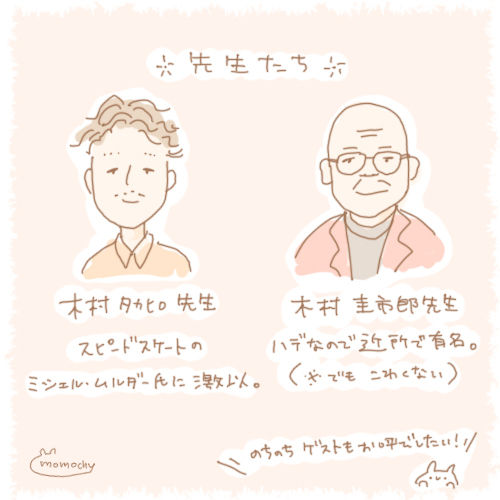 先生たち
木村タカヒロ先生
スピードスケートの
ミシェル・ムルダー氏に激似。
木村圭市郎先生
ハデなので近所で有名。
(※でもこわくない)
のちのちゲストもお呼びしたい!
momochy